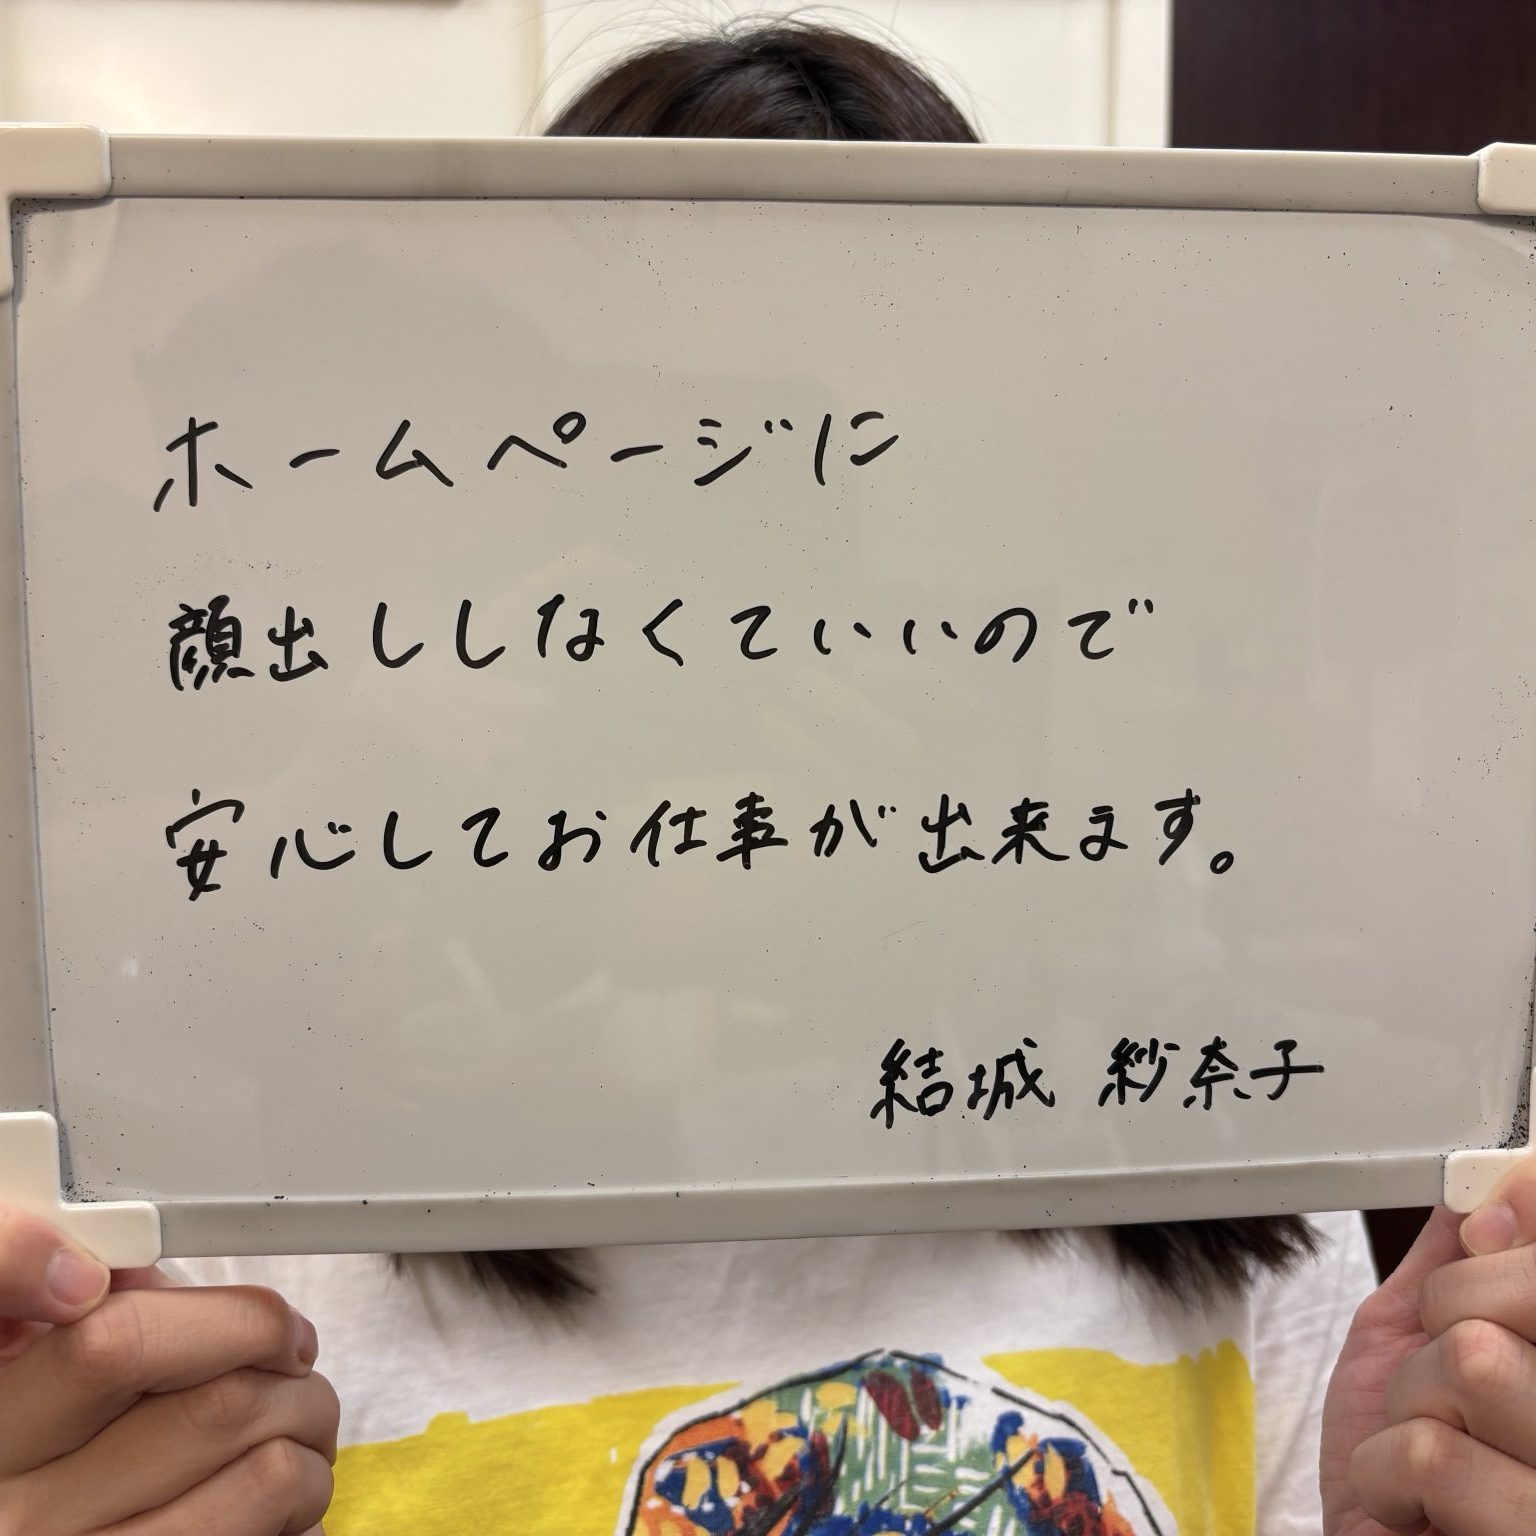 ホームページに
顔出ししなくていいので
安心してお仕事が出来ます。
結城 紗奈子